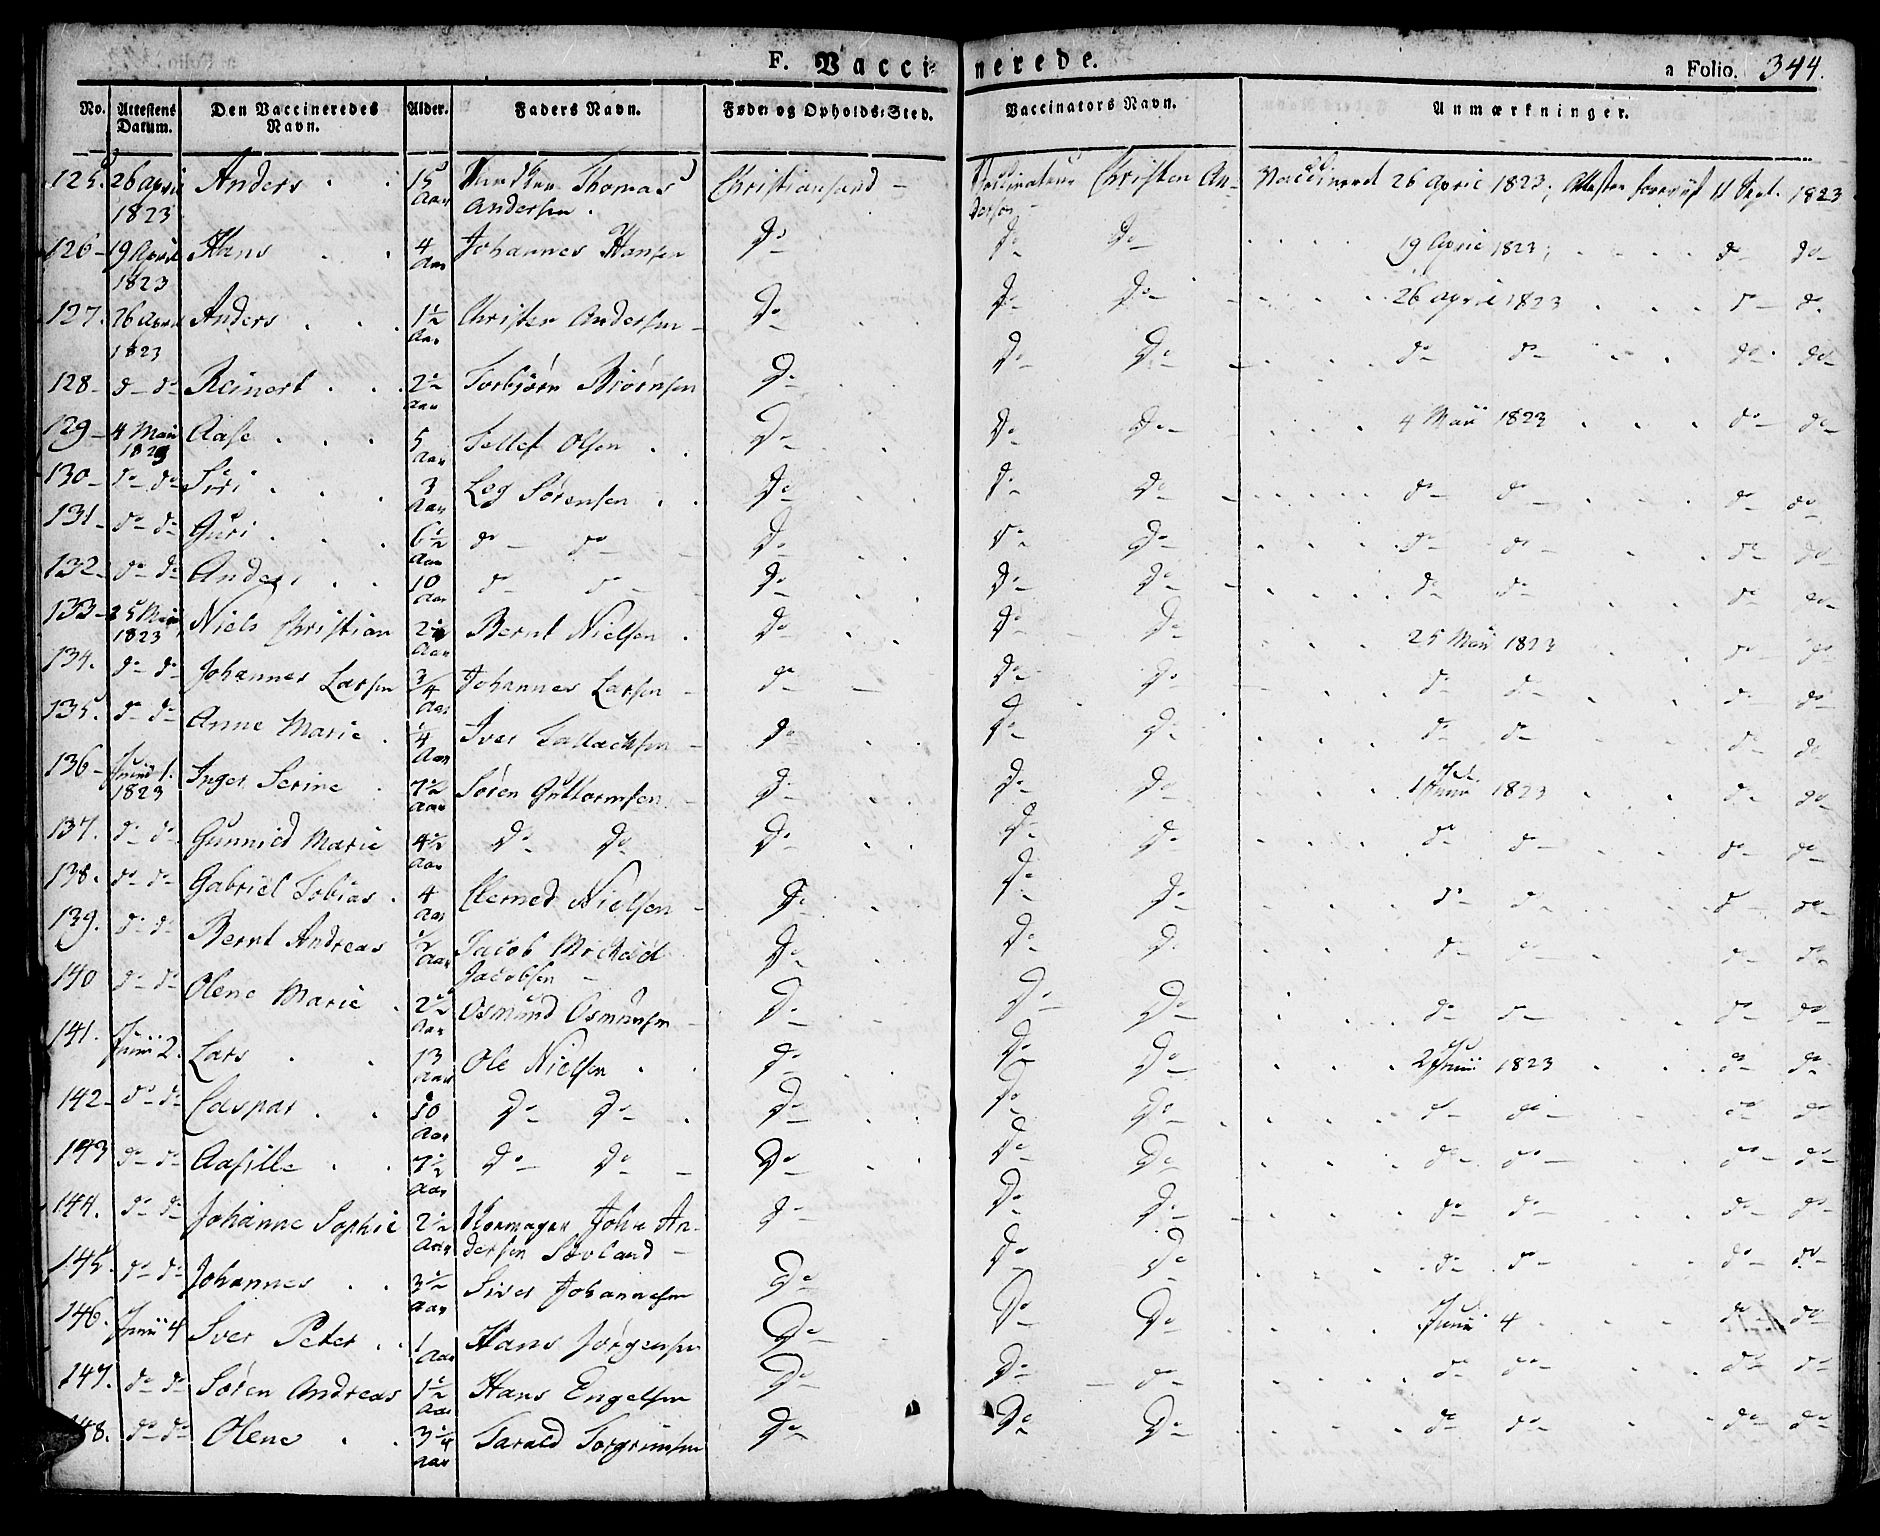 F. Vaccinerede. a Folio. 344.
No. Attestens Datum. Den Vaccineredes Navn. Alder. Faders Navn. Føde- og Opholds-Sted. Vaccinators Navn. Anmærkninger.
125. 26 April 1823 Anders 15 Aar Thomas Andersen Christiansand Christen Andersen Vaccineret 26 April 1823; Attesten foreviist 11 Sept. 1823
126 19 April 1823 Hans 4 Aar Johannes Hansen do do do 19 April 1823; do do
127. 26 April 1823 Anders 1½ Aar Christen Andersen do do do 26 April 1823 do do
128 do do Reinert 2½ Aar Torbjørn Biørnsen do do do do do do do
129 4 Maii 1823 Aase 5 Aar Tellef Olsen do do do 4 Maii 1823 do do
130 do do Siri 3 Aar Leg Sørensen do do do do do do do
131 do do Guri 6½ Aar do do do do do do do do do
132 do do Anders 10 Aar do do do do do do do do do
133 25 Maii 1823 Niels Christian 2½ Aar Bernt Nielsen do do do 25 Maii 1823 do do
134. do do Johannes Larsen 3/4 Aar Johannes Larsen do do do do do do do
135. do do Anne Marie ¼ Aar Iver Tallachsen do do do do do do do
136 Junii 1. 1823 Inger Serine 7½ Aar Søren Guttormsen do do do 1 Junii 1823 do do
137. do do Gunnild Marie 4½ Aar do do do do do do do do do
138. do do Gabriel Tobias 4 Aar Clemed Nielsen do do do do do do do
139. do do Bernt Andreas ½ Aar Jacob Michael Jacobsen do do do do do do do
140 do do Olene Marie 2½ Aar Osmund Osmunsen do do do do do do do
141. Junii 2. Lars 13 Aar Ole Nielsen do do do 2 Junii 1823 do do
142 do do Caspar 10 Aar do do do do do do do do do
143 do do Aasille 7½ Aar do do do do do do do do do
144. do do Johanne Sophie 2½ Aar John Andersen do do do do do do do
145. do do Johannes 3½ Aar Siver Johannesen do do do do do do do
146. Junii 4 Iver Peter 1 Aar Hans Jørgensen do do do Junii 4 do do
147. do do Søren Andreas 1½ Aar Hans Engelsen do do do do do do do
148. do do Olene 3¼ Aar Tarald Torgrimsen do do do do do do do